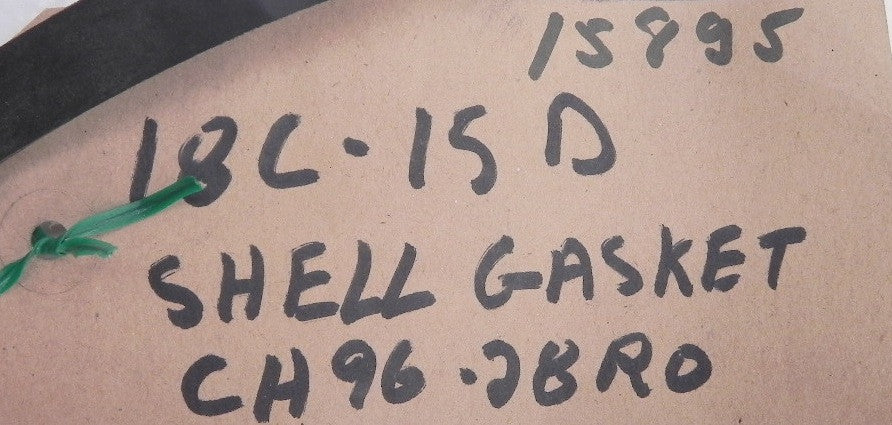 15895
18C-15D
SHELL GASKET
CH96-28R0